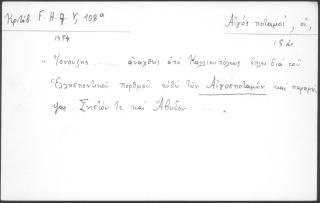 Κριτόβ. F. H. G. V, 108ᵃ
Αἰγὸς ποταμοί, οἱ,
1454
15 αι.
" Ἰονούζης ........ ἀναχθεὶς ἀπὸ Καλλιουπόλεως ἔπλει διὰ τοῦ
Ἑλλησποντικοῦ πορθμοῦ εὐθὺ τῶν Αἰγοσποταμῶν καὶ παραμεί-
ψας Σηστόν τε καὶ Ἄβυδον .......... "